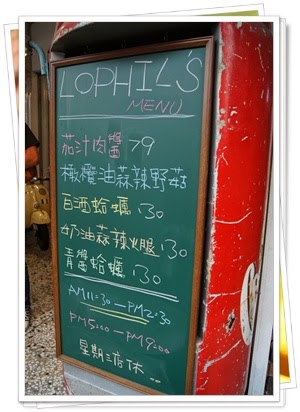 LOPHILS
MENU
茄汁肉醬 79
橄欖油蒜辣野菇
白酒蛤蠣 130
奶油蒜辣火腿 130
青醬蛤蠣 130
AM11:30 — PM2:30
PM5:00 — PM9:00
星期三店休...